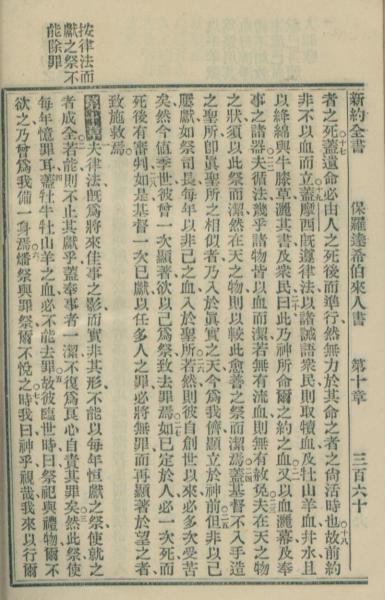 新約全書 保羅達希伯來人書 第十章 三百六十
者之死蓋遺命必由人之死後而準行然無力於其命之者之尚活時也故前約
非不以血而立蓋摩西既遵律法以諸誡語衆民則取犢血及牡山羊血井水且
以絳綿與牛膝草灑其書及衆民曰此乃神所命爾之約之血又以血灑幕及奉
事之諸器夫循法幾乎諸物皆以血而潔若無有流血則無有赦免夫在天之物
之狀須以此祭而潔然在天之物則以較此愈善之祭而潔焉蓋基督不入手造
之聖所卽眞聖所之相似者乃入於眞實之天今爲我儕顯立於神前但非以己
屢獻如祭司長每年以非己之血入於聖所若然則彼自創世以來必多次受苦
矣然今值季世彼曾一次顯著欲以己爲祭致去罪焉如已定於人必一次死而
死後有審判如是基督一次已獻以任多人之罪必將無罪而再顯著於望之者
致施救焉
第十章夫律法既爲將來佳事之影而實非其形不能以每年恒獻之祭使就之
者成全若能則不止其獻乎蓋奉事者一潔不復爲良心自責其罪矣然此祭使
每年憶罪耳蓋牡牛牡山羊之血必不能去罪故彼臨世時曰祭祀與禮物爾不
欲之乃曾爲我備一身焉燔祭與罪祭爾不悅之時我曰神乎視哉我來以行爾
按律法而
獻之祭不
能除罪